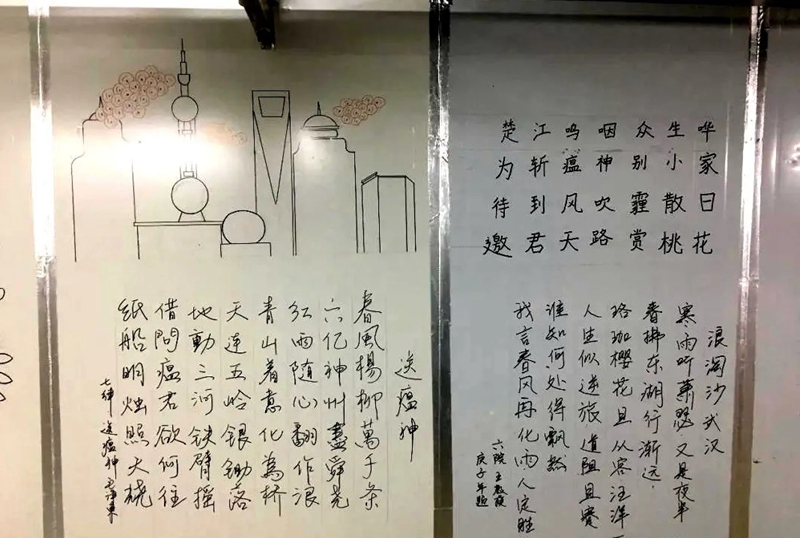 送瘟神
春風楊柳萬千条
六亿神州盡舜尧
红雨随心翻作浪
青山着意化為桥
天连五岭银锄落
地動三河铁臂摇
借問瘟君欲何往
纸船明烛照天烧
七律 送瘟神 毛泽東
楚江呜咽众生哗
为斩瘟神别小家
待到风吹霾散日
邀君天路赏桃花
浪淘沙 武汉
寒雨听萧瑟 又是夜半
春拂东湖行渐远
珞珈樱花且从容 汪洋
人生似逆旅 道阻且
谁知何处得飘然
我言春风再化雨 人定胜
六院 王
庚子年题